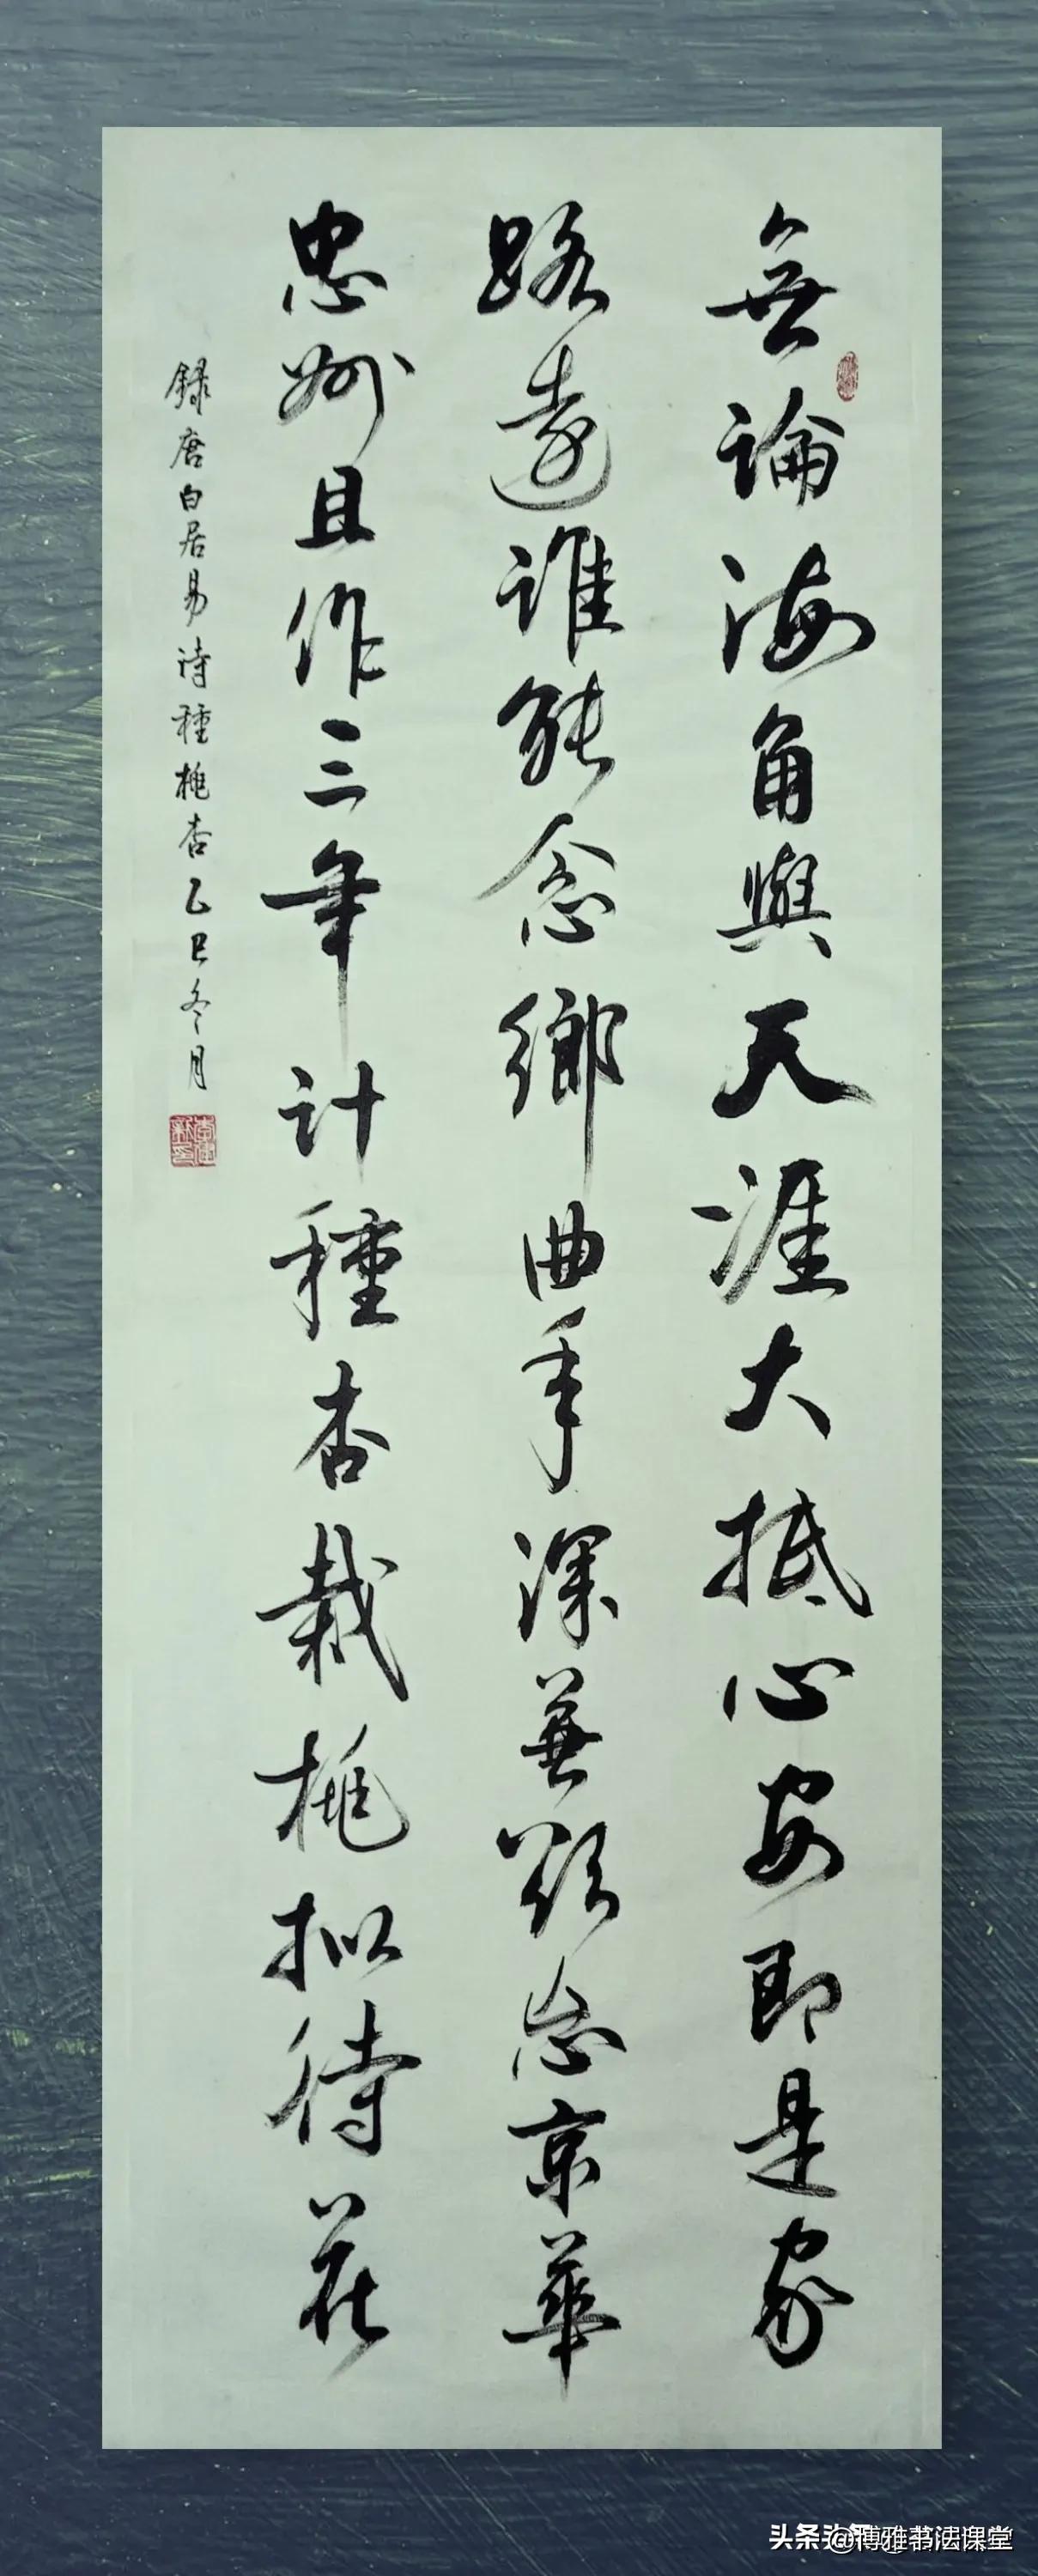 無論海角與天涯大抵心安即是家
路遠誰能念鄉曲年深兼欲忘京華
忠州且作三年計種杏栽桃拟待花
録唐白居易诗種桃杏乙巳冬月
头条 @博雅书法课堂